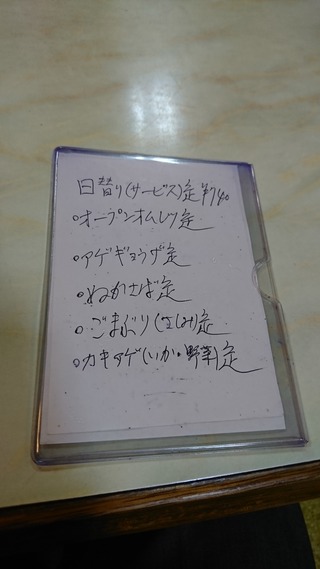 日替り(サービス)定 ¥740
○オープンオムレツ定
○アゲギョウザ定
○ぬかさば定
○ごまぶり(さしみ)定
○カキアゲ(いか・野菜)定